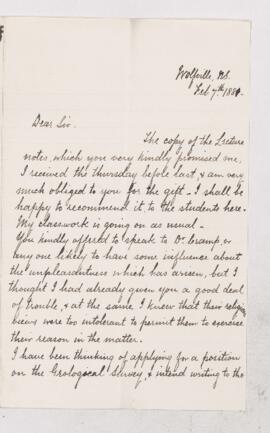 Wolfville, N.S.
Feb. 7th 188
Dear Sir.
The copy of the Lecture
notes, which you very kindly promised me,
I received the Thursday before last, & am very
much obliged to you for the gift - I shall be
happy to recommend it to the students here.
My classwork is going on as usual -
You kindly offered to speak to D. Cramp, or
any one likely to have some influence about
the unpleasantness which has arisen, but I
thought I had already given you a good deal
of trouble, & at the same I knew that their religious
views were too intolerant to permit them to exercise
their reason in the matter.
I have been thinking of applying for a position
on the Geological Survey, & intend writing to the